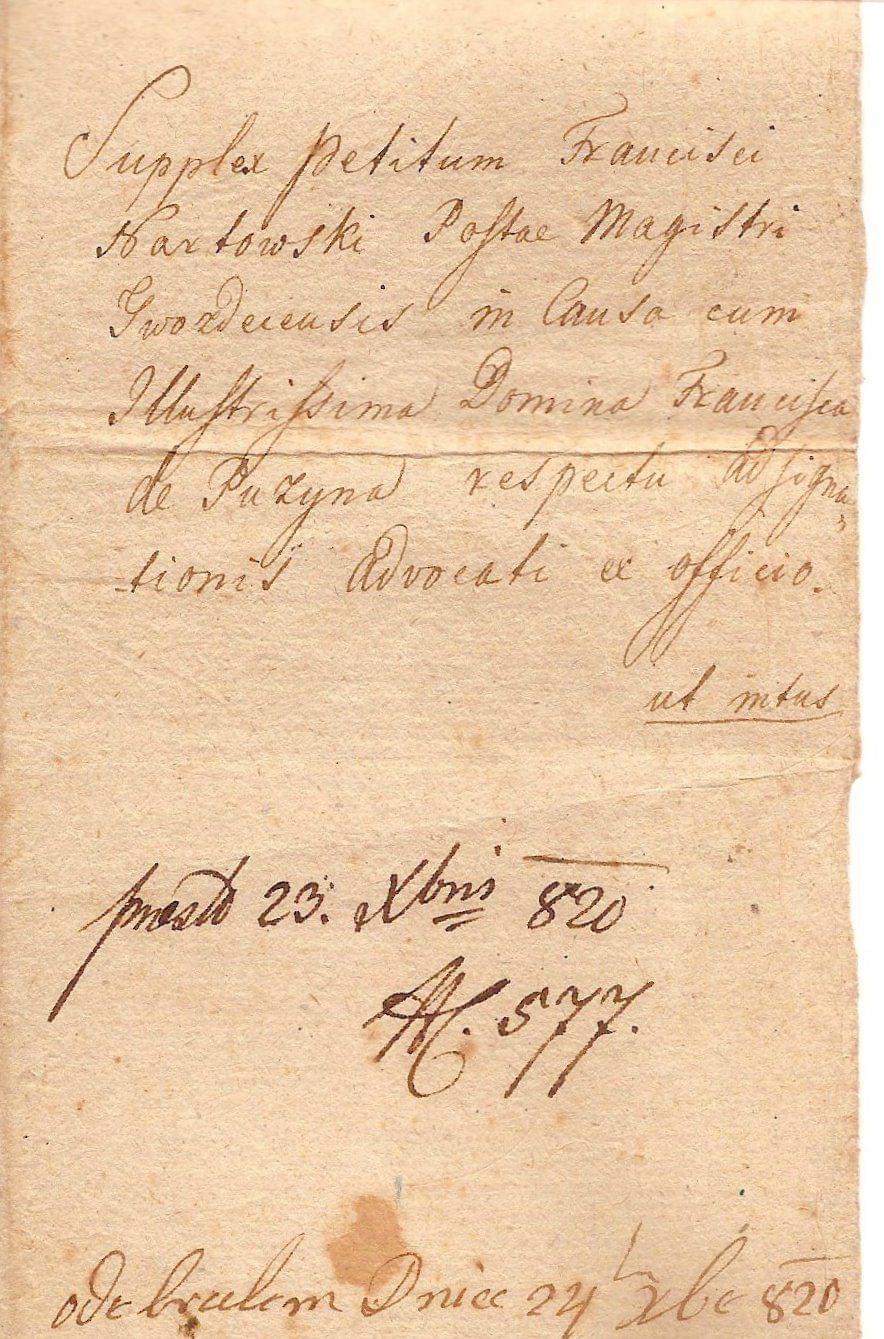 Supplex petitum Francisci
Nartowski Postae Magistri
Gwozdecensis in Causa cum
Illustrissima Domina Francisca
de Puzyna respectu Adsigna=
tionis Advocati ex officio.
ut intus
23. Xbris 820
577.
odebralem Dnia 24 xbe 820